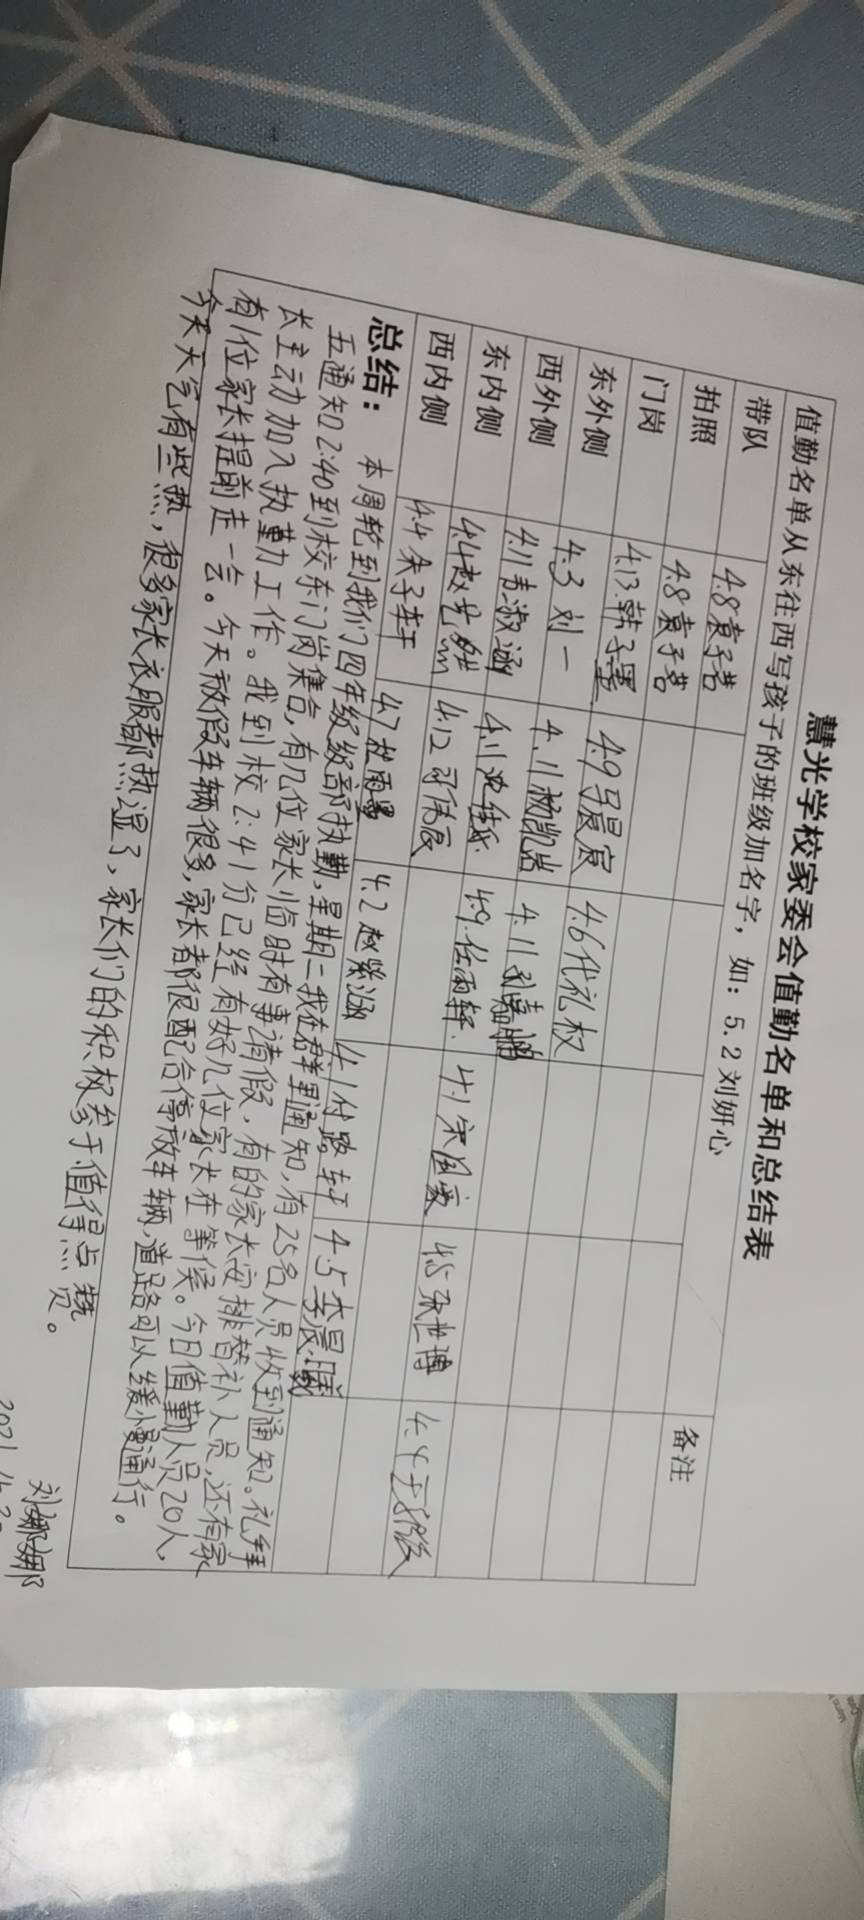 慧光学校家委会值勤名单和总结表
值勤名单从东往西写孩子的班级加名字，如：5.2刘妍心
带队 4.8袁子茗 备注
拍照 4.8袁子茗
门岗 4.13.韩子墨
东外侧 4.3 刘一 4.9马晨宸 4.6代礼权
西外侧 4.11韦淑涵 4.11杨凯岩 4.11孔嘉
东内侧 4.4赵艺然 4.11 4.9.任雨轩. 4.1宋国 4.5张世博 4.4于
西内侧 4.4朱子轩 4.12司伟辰
4.7杜雨墨 4.2赵紫涵 4.1付路轩 4.5李晨曦
总结：本周轮到我们四年级级部执勤，星期二我在群里通知，有25名人员收到通知。礼拜
五通知2:40到校东门岗集合，有几位家长临时有事请假，有的家长安排替补人员，还有家
长主动加入执勤工作。我到校2:41分已经有好几位家长在等候。今日值勤人员20人，
有1位家长提前走一会。今天放假车辆很多，家长都很配合停放车辆，道路可以缓慢通行。
今天天气有些热，很多家长衣服都热湿了，家长们的积极参于值得点赞。
刘娜娜
2021.